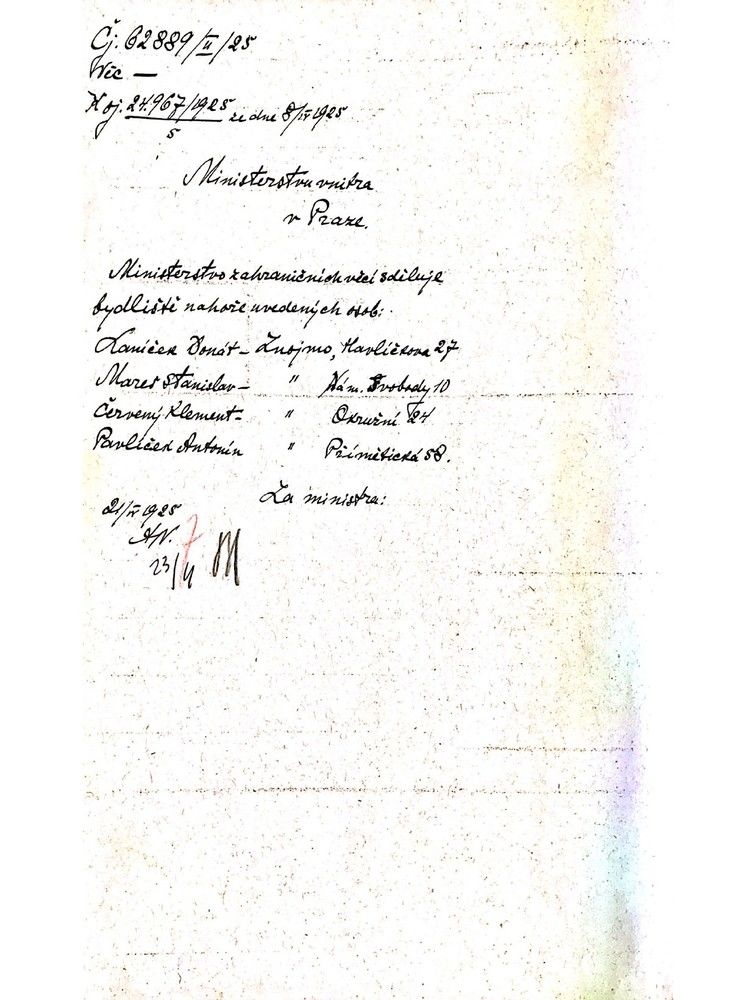 Čj. 62889/II/25
Věc —
K čj. 24.967/1925 ze dne 8/IV 1925
5
Ministerstvu vnitra
v Praze.
Ministerstvo zahraničních věcí sděluje
bydliště nahoře uvedených osob:
Laníček Donát – Znojmo, Havlíčkova 27
Mareš Stanislav – " Nám. Svobody 10
Červený Klement – " Okružní 24
Pavlíček Antonín " Přímětická 58.
Za ministra:
21/IV 1925
7
23/4